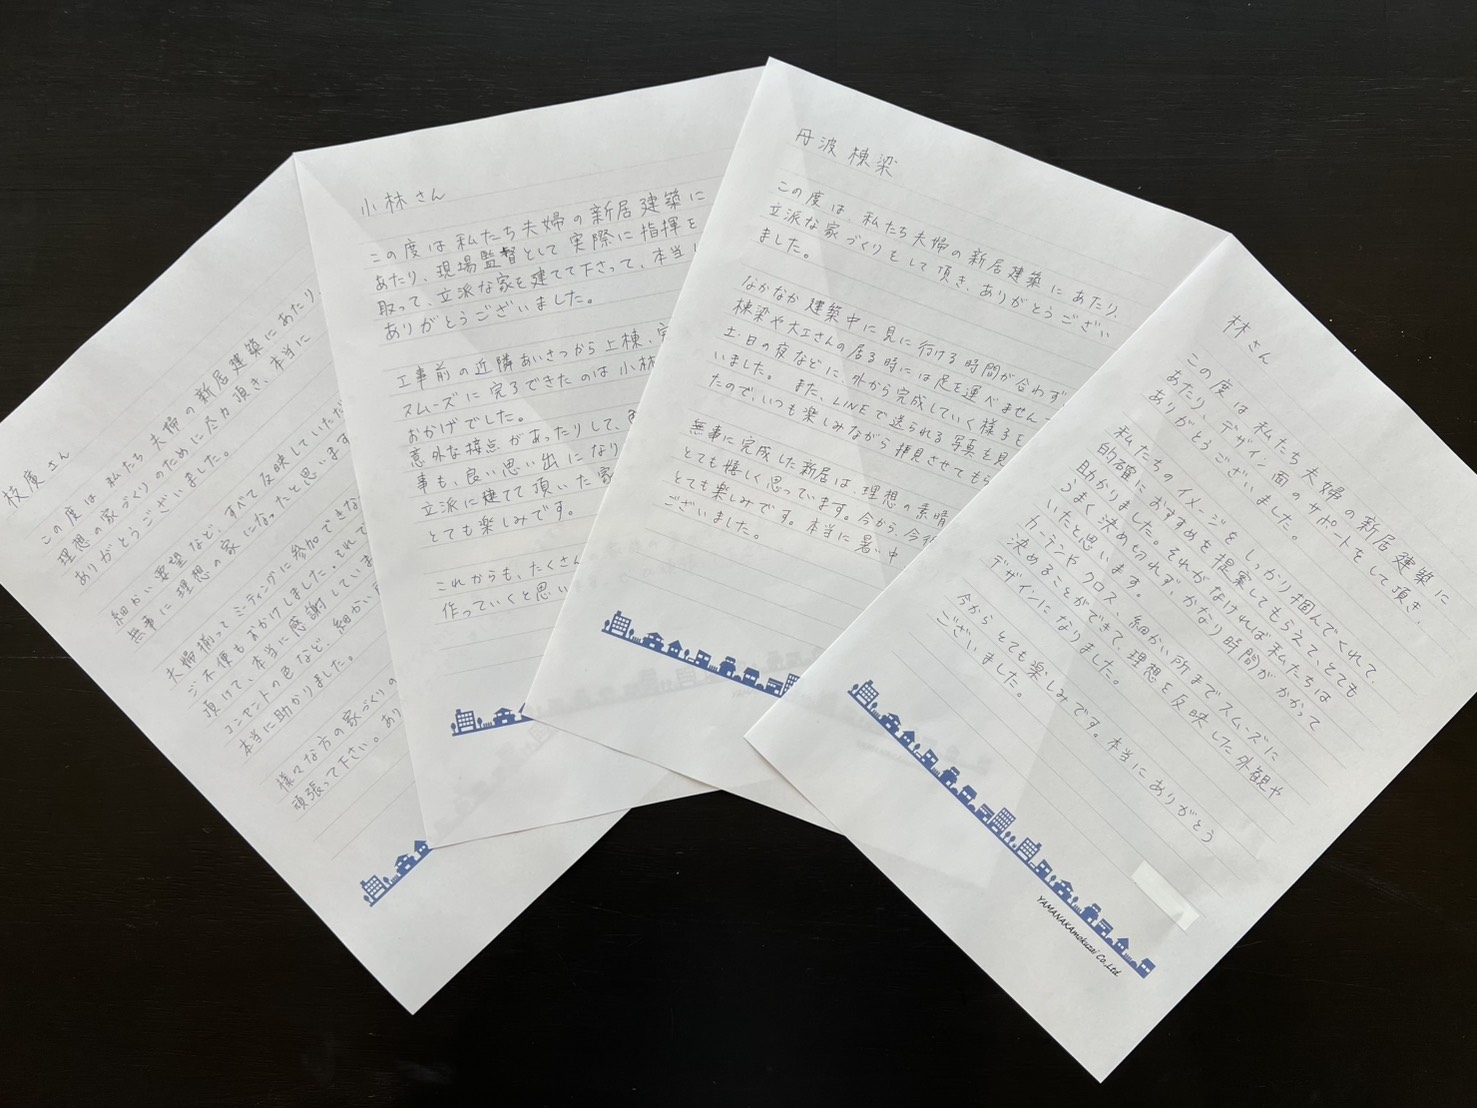 枝廣さん
この度は私たち夫婦の新居建築にあたり
理想の家づくりのために尽力頂き、本当に
ありがとうございました。
細かい要望など、すべて反映していただ
無事に理想の家になったと思います
夫婦揃ってミーティングに参加できな
ご不便もおかけしました。それで
頂けて、本当に感謝していま
コンセントの色など、細かい
本当に助かりました。
様々な方の家づくりの
頑張って下さい。あり
小林さん
この度は私たち夫婦の新居建築に
あたり、現場監督として実際に指揮を
取って、立派な家を建てて下さって、本当に
ありがとうございました。
工事前の近隣あいさつから上棟、完
スムーズに完了できたのは小林
おかげでした。
意外な接点があったりして、
事も、良い思い出になり
立派に建てて頂いた家
とても楽しみです。
これからも、たくさん
作っていくと思い
丹波棟梁
この度は、私たち夫婦の新居建築にあたり、
立派な家づくりをして頂き、ありがとうござい
ました。
なかなか建築中に見に行ける時間が合わず
棟梁や大工さんの居る時には足を運べません
土・日の夜などに、外から完成していく様子を
いました。また、LINEで送られる写真を見
たので、いつも楽しみながら拝見させてもら
無事に完成した新居は、理想の素晴
とても嬉しく思っています。今から、今後
とても楽しみです。本当に暑い中
ございました。
林さん
この度は私たち夫婦の新居建築に
あたり、デザイン面のサポートをして頂き、
ありがとうございました。
私たちのイメージをしっかり掴んでくれて、
的確におすすめを提案してもらえて、とても
助かりました。それがなければ私たちは
うまく決め切れず、かなり時間がかかって
いたと思います。
カーテンやクロス、細かい所までスムーズに
決めることができて、理想を反映した外観や
デザインになりました。
今からとても楽しみです。本当にありがとう
ございました。
YAMANAKAmokuzai Co.,Ltd.